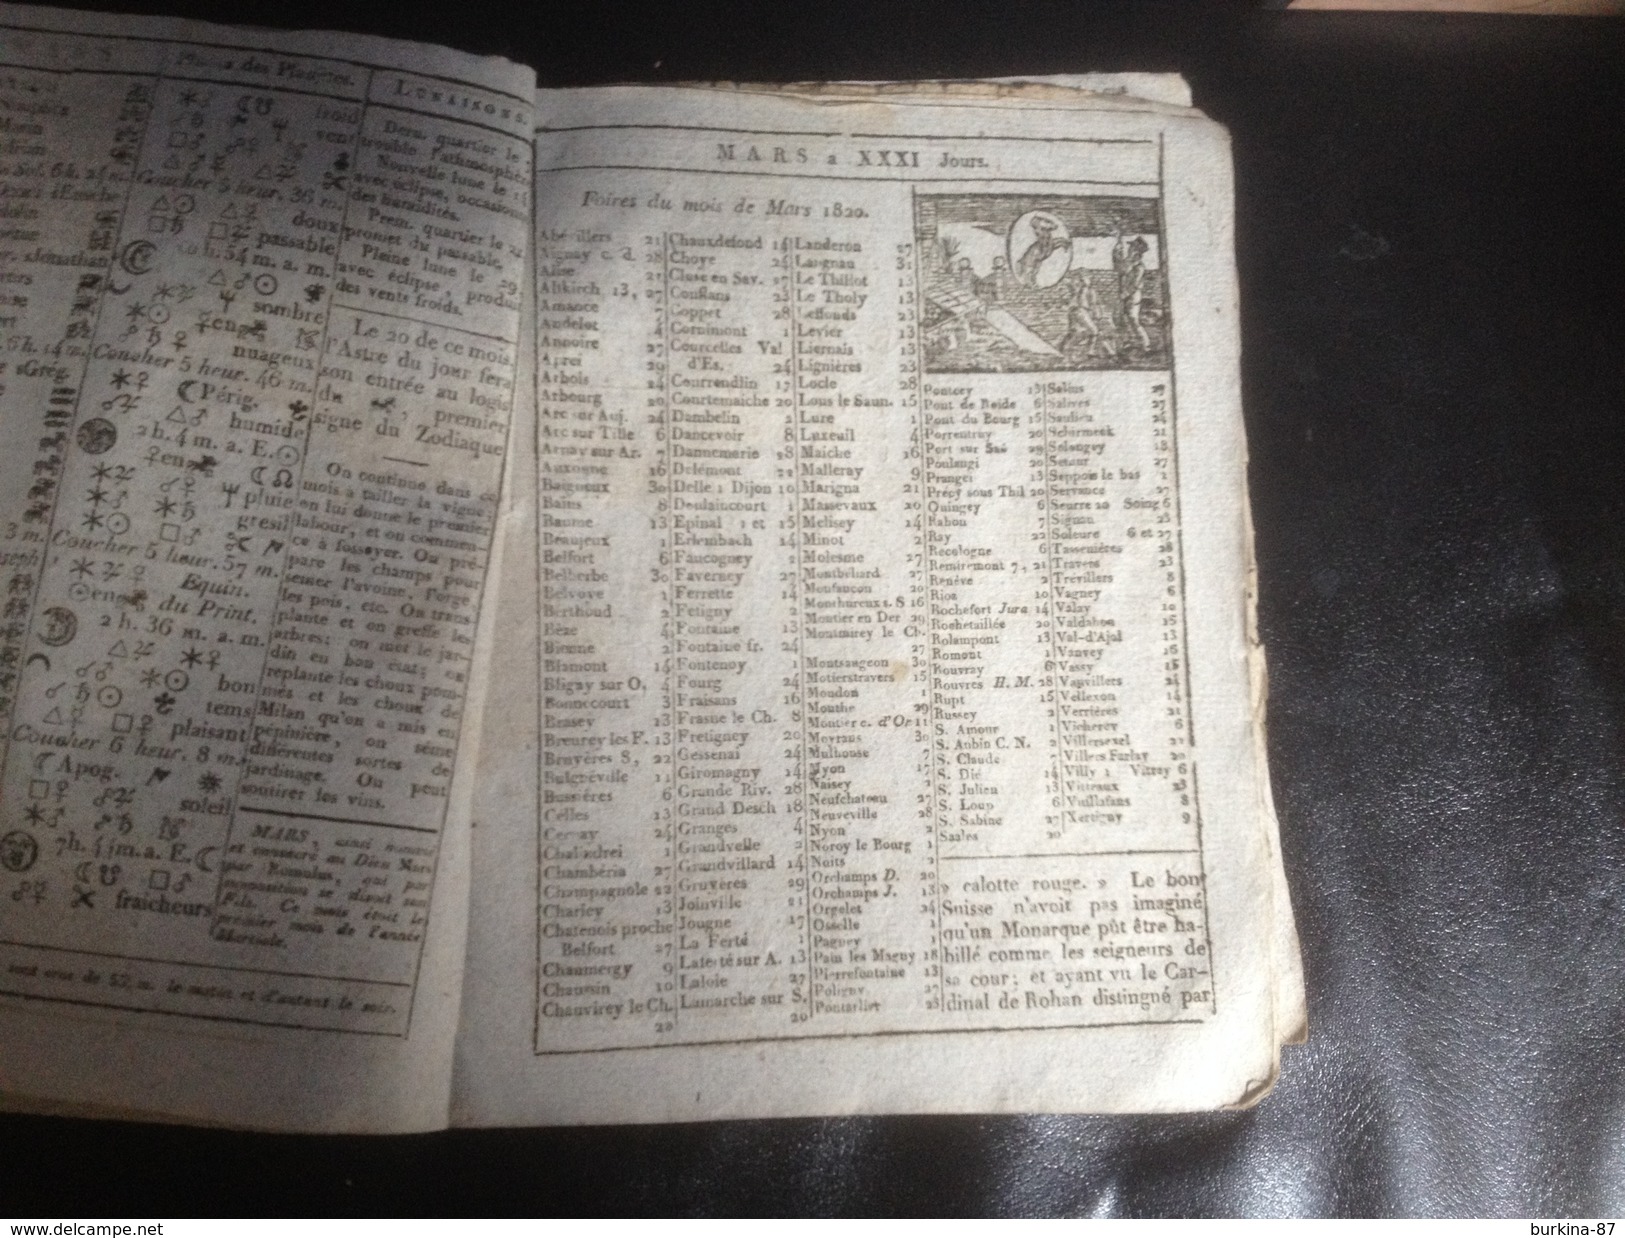 des Planètes.
LUNAISONS.
froid
vent
Coucher 5 heur. 36 m.
doux
passable
h. 54 m. a. m.
sombre
nuageux
Coucher 5 heur. 46 m.
Périg.
humide
2 h. 4 m. a. E.
pluie
gresil
Coucher 5 heur. 57 m.
Equin.
du Print.
2 h. 36 m. a. m.
bon
tems
plaisant
Coucher 6 heur. 8 m.
Apog.
soleil
7 h. 4 m. a. E.
fraicheurs
Dern. quartier le
trouble l'athmosphère
Nouvelle lune le 14
avec éclipse, occasionne
des humidités.
Prem. quartier le 22,
promet du passable.
Pleine lune le 29,
avec éclipse, produit
des vents froids.
Le 20 de ce mois,
l'Astre du jour fera
son entrée au logis
du , premier
signe du Zodiaque
On continue dans ce
mois à tailler la vigne;
on lui donne le premier
labour, et on commen-
ce à fossoyer. On pré-
pare les champs pour
semer l'avoine, l'orge,
les pois, etc. On trans-
plante et on greffe les
arbres; on met le jar-
din en bon état; on
replante les choux pom-
més et les choux de
Milan qu'on a mis en
pépinière, on sème
différentes sortes de
jardinage. On peut
soutirer les vins.
MARS, ainsi nommé
et consacré au Dieu Mars
par Romulus, qui par
supposition se disoit son
Fils. Ce mois étoit le
premier mois de l'année
Martiale.
le matin et d'autant le soir.
MARS a XXXI Jours.
Foires du mois de Mars 1820.
Abévillers 21
Aignay c. d. 28
Alise 21
Altkirch 13, 27
Amance 7
Andelot 4
Anvoire 27
Aprei 29
Arbois 24
Arbourg 20
Arc sur Auj. 24
Arc sur Tille 6
Arnay sur Ar. 7
Auxonne 16
Baigneux 30
Bains 8
Baume 13
Beaujeux 1
Belfort 6
Belherbe 30
Belvoye 1
Berthoud 2
Bèze 4
Bienne 2
Blamont 14
Bligny sur O. 4
Bonnecourt 3
Brasey 13
Breurey les F. 13
Bruyères 8, 22
Bulgnéville 11
Bussières 6
Celles 13
Cernay 24
Chalindrei 1
Chambéria 27
Champagnole 22
Chariey 13
Chatenois proche
Belfort 27
Chaumergy 9
Chaussin 10
Chauvirey le Ch.
22
Chauxdefond 14
Choye 24
Cluse en Sav. 27
Conflans 23
Coppet 28
Cornimont 1
Courcelles Val
d'Es. 24
Courrendlin 17
Courtemaiche 20
Dambelin 2
Dancevoir 8
Dannemarie 28
Delémont 22
Delle 1 Dijon 10
Doulaincourt 1
Epinal 1 et 15
Erlembach 14
Faucogney 2
Faverney 27
Ferrette 14
Fetigny 2
Fontaine 13
Fontaine fr. 24
Fontenoy 1
Fourg 24
Fraisans 16
Frasne le Ch. 8
Fretigney 20
Gessenai 24
Giromagny 14
Grande Riv. 28
Grand Desch 18
Granges 4
Grandvelle 2
Grandvillard 14
Gruyères 29
Joinville 21
Jougne 17
La Ferté 1
Laferté sur A. 13
Laloie 27
Lamarche sur S.
20
Landeron 27
Langnau 31
Le Thillot 13
Le Tholy 13
Leffonds 23
Levier 13
Liernais 13
Lignières 23
Locle 28
Lons le Saun. 15
Lure 1
Luxeuil 4
Maiche 16
Malleray 9
Marigna 21
Massevaux 20
Melisey 14
Minot 2
Molesme 27
Montbéliard 27
Montfaucon 20
Monthureux s. S 16
Montier en Der 29
Montmirey le Ch.
27
Montsaugeon 30
Motierstravers 15
Moudon 1
Mouthe 29
Moutier c. d'Or 11
Meyrans 30
Mulhouse 7
Myon 17
Naisey 2
Neufchateau 27
Neuveville 28
Nyon 2
Noroy le Bourg 1
Nuits 2
Orchamps D. 20
Orchamps J. 13
Orgelet 24
Osselle 1
Pagney 1
Pain les Magny 18
Pierrefontaine 13
Poligny 27
Pontarlier 23
Pontcey 13
Pont de Roide 6
Pont du Bourg 15
Porrentruy 20
Port sur Saô 29
Poulangi 20
Prangei 13
Précy sous Thil 20
Quingey 6
Rahon 7
Ray 22
Recologne 6
Remiremont 7, 21
Renève 2
Rioz 10
Rochefort Jura 14
Rochetaillée 20
Rolampont 13
Romont 1
Rouvray 6
Rouvres H. M. 28
Rupt 15
Russey 2
S. Amour 1
S. Aubin C. N. 2
S. Claude 7
S. Dié 14
S. Julien 13
S. Loup 6
S. Sabine 27
Saales 20
Salins 29
Salives 27
Saulieu 24
Schirmeck 21
Selongey 18
Semur 27
Seppois le bas 1
Servance 27
Seurre 20 Soing 6
Signau 23
Soleure 6 et 27
Tassenières 28
Travers 23
Trévillers 8
Vagney 6
Valay 10
Valdahon 15
Val-d'Ajol 13
Vanvey 16
Vassy 15
Vauvillers 24
Vellexon 14
Verrières 21
Vicherey 6
Villersexel 22
Villers Farlay 20
Villy 1 Vitrey 6
Vitteaux 23
Vuillafans 8
Xertigny 9
» calotte rouge. » Le bon
Suisse n'avoit pas imaginé
qu'un Monarque pût être ha-
billé comme les seigneurs de
sa cour; et ayant vu le Car-
dinal de Rohan distingné par
www.delcampe.net
burkina-87